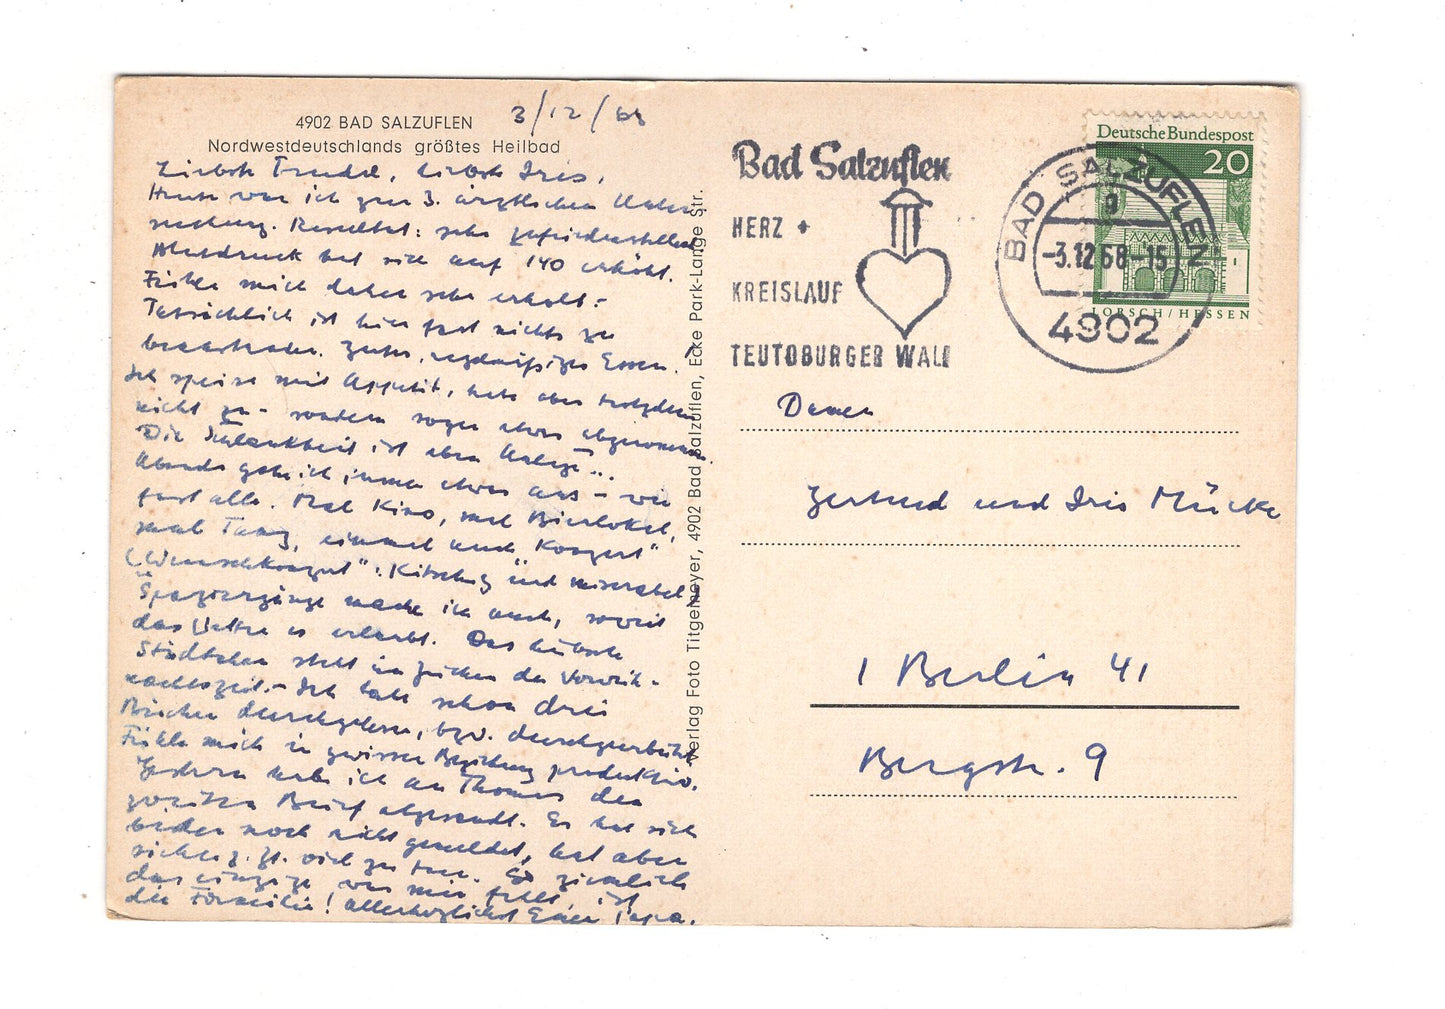 4902 BAD SALZUFLEN
Nordwestdeutschlands größtes Heilbad
3/12/68
Liebste Trudel, liebste Iris,
Heute war ich zur 3. ärztlichen Unter-
suchung. Resultat: sehr zufriedenstellend
Blutdruck hat sich auf 140 erhöht.
Fühle mich daher sehr erholt.-
Tatsächlich ist hier fast nichts zu
beanstanden. Gutes, regelmäßiges Essen!
Ich speise mit Appetit, habe aber trotzdem
nicht zu- sondern sogar etwas abgenommen
Die Schlankheit ist eben Anlage...
Abends gehe ich immer etwas aus - wie
fast alle. Mal Kino, mal Bierlokal,
mal Tanz, einmal auch "Konzert"
("Wunschkonzert": Kitschig und miserabel)
Spaziergänge mache ich auch, soweit
das Wetter es erlaubt. Das hübsche
Städtchen steht im Zeichen der Vorweih-
nachtszeit.- Ich habe schon drei
Bücher durchgelesen, bzw. durchgearbeitet
Fühle mich in gewisser Beziehung produktiv.
Gestern habe ich an Thomas den
zweiten Brief abgesandt. Er hat sich
leider noch nicht gemeldet, hat aber
sicher z. Zt. viel zu tun. So ziemlich
das einzige was mir fehlt ist
die Familie! Allerherzlichst Euer Papa.
Verlag Foto Titgemeyer, 4902 Bad Salzuflen, Ecke Park-Lange Str.
Bad Salzuflen
HERZ +
KREISLAUF
TEUTOBURGER WALD
BAD SALZUFLEN
g
-3.12.68-15
4902
Deutsche Bundespost
20
LORSCH/HESSEN
Damen
Gertrud und Iris Mücke
1 Berlin 41
Bergstr. 9